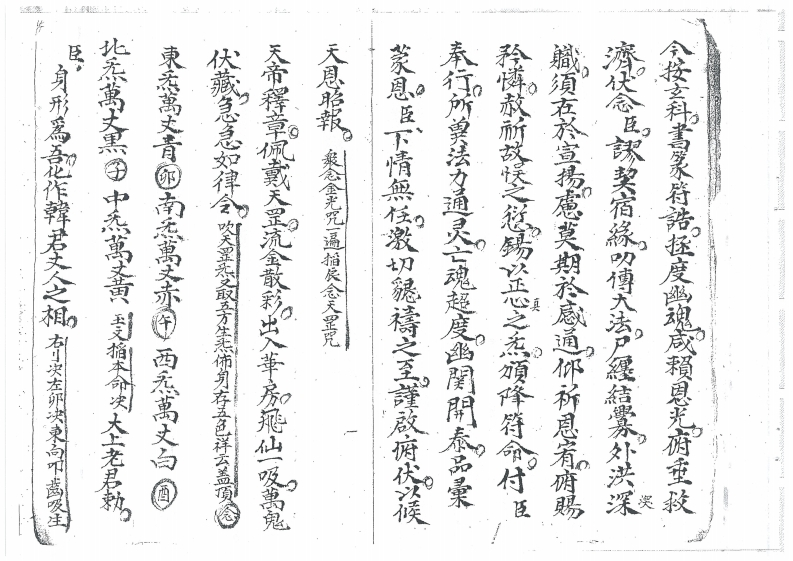 今按玄科書篆符誥拯度幽魂咸賴恩光俯垂救
濟伏念臣謬契宿緣叨傳大法尸纏結釁外洪深
職須在於宣揚慮莫期於感通仰祈恩宥俯賜
矜憐赦祈故悞之愆錫以正心之炁頒降符命付臣
真
奉行所兾法力通灵亡魂超度幽関開泰品彙
蒙恩臣下情無任激切懇禱之至謹啟俯伏以候
天恩昭報 衆念金光咒一遍掐辰念天罡咒
天帝釋章佩戴天罡流金散彩出入華房飛仙一吸萬鬼
伏藏急急如律令 吹天罡炁又取五方生炁佈身存五色祥云盖頂念
東炁萬丈青卯南炁萬丈赤午西炁萬丈白酉
北炁萬丈黑子中炁萬丈黃 玉文掐本命次 大上老君勅
臣身形爲吾化作韓君丈人之相 右次左卯决東向叩齒吸生